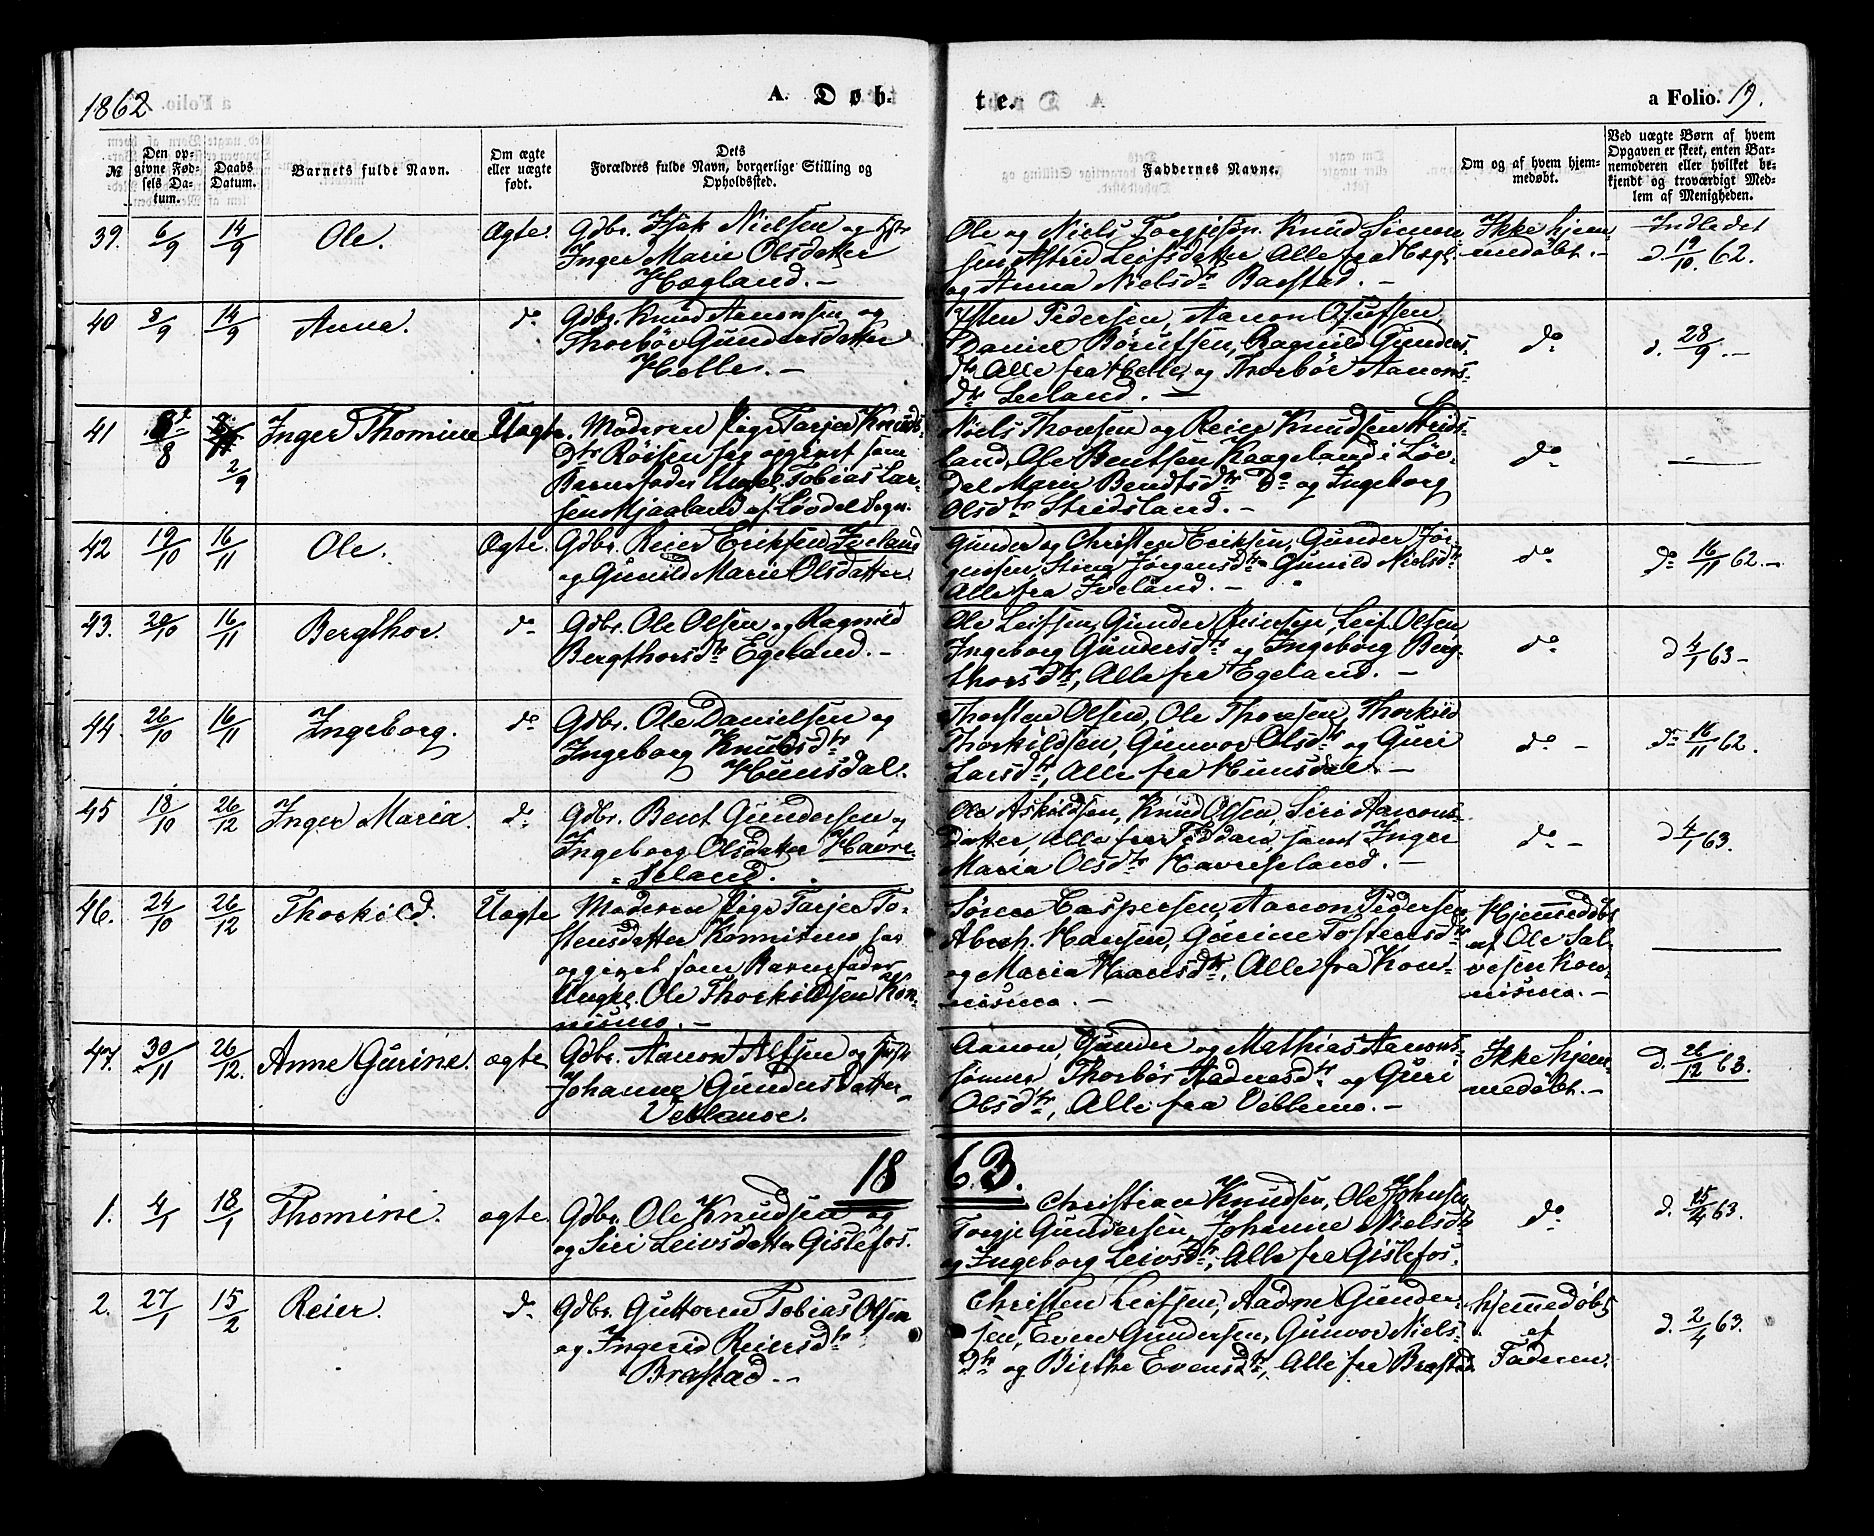 1862
A. Døb-
te.
a Folio. 19.
№
Den op-
givne Fød-
sels Da-
tum.
Daabs
Datum.
Barnets fulde Navn.
Om ægte
eller uægte
født.
Dets
Forældres fulde Navn, borgerlige Stilling og
Opholdssted.
Faddernes Navne.
Om og af hvem hjem-
medøbt.
Ved uægte Børn af hvem
Opgaven er skeet, enten Bar-
nemoderen eller hvilket be-
kjendt og troværdigt Med-
lem af Menigheden.
39. 6/9 14/9 Ole. Ægte.
Gdbr. Isak Nielsen og
Inger Marie Olsdatter
Hægland. -
Ole og Niels Torgjesøn. Knud Simon-
sen Astrid Leifsdatter Alle fra Hægl.
og Anna Nielsdtr Barstad. -
Ikke hjem-
medøbt. -
Indledet
d 19/10. 62.
40 8/9 14/9 Anna. do
Gdbr. Knud Aanonsen og
Thorbør Gundersdatter
Helle. -
Osten Pedersen, Aanon Olufsen,
Daniel Børufsen, Ragnild Gunders-
dtr Alle fra Helle, og Thorbør Aanons-
dtr Leeland. -
do
d. 28/9. -
41 /8 2/9 Inger Thomine Uægte.
Moderen Pige Tarjer Knuds-
dtr Røisen sig opgivet som
Barnefader Ungk. Tobias Lar-
sen Mjaaland af Løvdal Sogn.
Niels Thorsen og Reier Knudsen Strids-
land, Ole Bentsen Kaageland i Løv-
dal Marie Bendtsdtr Do og Ingeborg
Olsdtr Stridsland. -
do
42 19/10 16/11 Ole. Ægte.
Gdbr. Reier Eriksen Iveland
og Gunild Marie Olsdatter
Gunder og Christen Eriksen, Gunder Jør-
gensen, Stine Jørgensdtr Gunild Nielsdtr
Alle fra Iveland. -
do
do 16/11 62. -
43. 20/10 16/11 Bergthor. do
Gdbr. Ole Olsen og Ragnild
Bergthorsdtr Egeland. -
Ole Leifsen, Gunder Reiersen, Leif Olsen
Ingeborg Gundersdtr og Ingeborg Berg-
thorsdtr, Alle fra Egeland. -
do
d 4/1 63 -
44. 26/10 16/11 Ingeborg. do
Gdbr. Ole Danielsen og
Ingeborg Knudsdtr
Hunsdal.
Thorsten Olsen, Ole Thorsen, Thorkild
Thorkildsen, Gunvor Olsdtr og Guri
Larsdtr, Alle fra Hunsdal. -
do -
do 16/11 62.
45 18/10 26/12 Inger Maria. do
Gdbr. Bent Gundersen og
Ingeborg Olsdatter Havre-
seland.
Ole Askildsen, Knud Olsen, Siri Aanons-
datter, Alle fra samt Inger
Maria Olsdtr Havreseland. -
do -
d 4/1 63.
46. 24/10 26/12 Thorkild. Uægte
Moderen Pige Tarjer To-
stensdatter Konnismo har
opgivet som Barnefader
Ungk. Ole Thorkildsen Kon-
nismo. -
Søren Caspersen, Aanon Pedersen
Abrah. Hansen, Gurine Tostensdtr
og Maria Hansdtr, Alle fra Kon-
nismo. -
Hjemmedøbt
af Ole Sal-
vesen Kon-
nismo. -
47. 30/11 26/12. Anne Gurine. ægte
Gdbr. Aanon Alfsen og Hustr
Johanne Gundersdatter
Veblamoe.
Aanon, Gunder og Mathias Aanons-
sønner, Thorbør Aadnesdtr og Guri
Olsdtr, Alle fra Veblemo. -
Ikke hjem-
medøbt. -
d. 26/12 63.
1863.
1. 4/1 18/1 Thomine. ægte
Gdbr. Ole Knudsen og
og Siri Leivsdatter Gislefos.
Christian Knudsen, Ole Johnsen,
Torje Gundersen, Johanne Nielsdtr
og Ingeborg Leivsdtr, Alle fra Gislefos.
do
d. 15/4 63.
2. 27/1 15/2 Reier. do
Gdbr. Guttorm Tobias Olsen
og. Ingerid Reiersdtr
Brastad. -
Christen Leifsen, Aadne Gunder-
sen, Even Gundersen, Gunvor Niels-
dtr og Birthe Evensdtr, Alle fra Brastad
hjemmedøbt
af
Faderen.
d. 2/4 63.